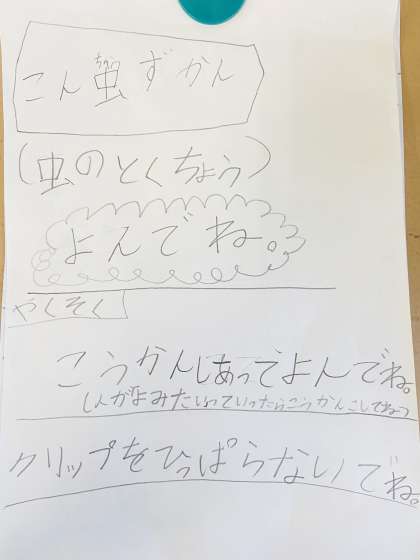 こん蟲ずかん
(虫のとくちょう)
よんでね。
やくそく
こうかんしあってよんでね。
(人がよみたいっていったらこうかんこしてね)
クリップをひっぱらないでね。